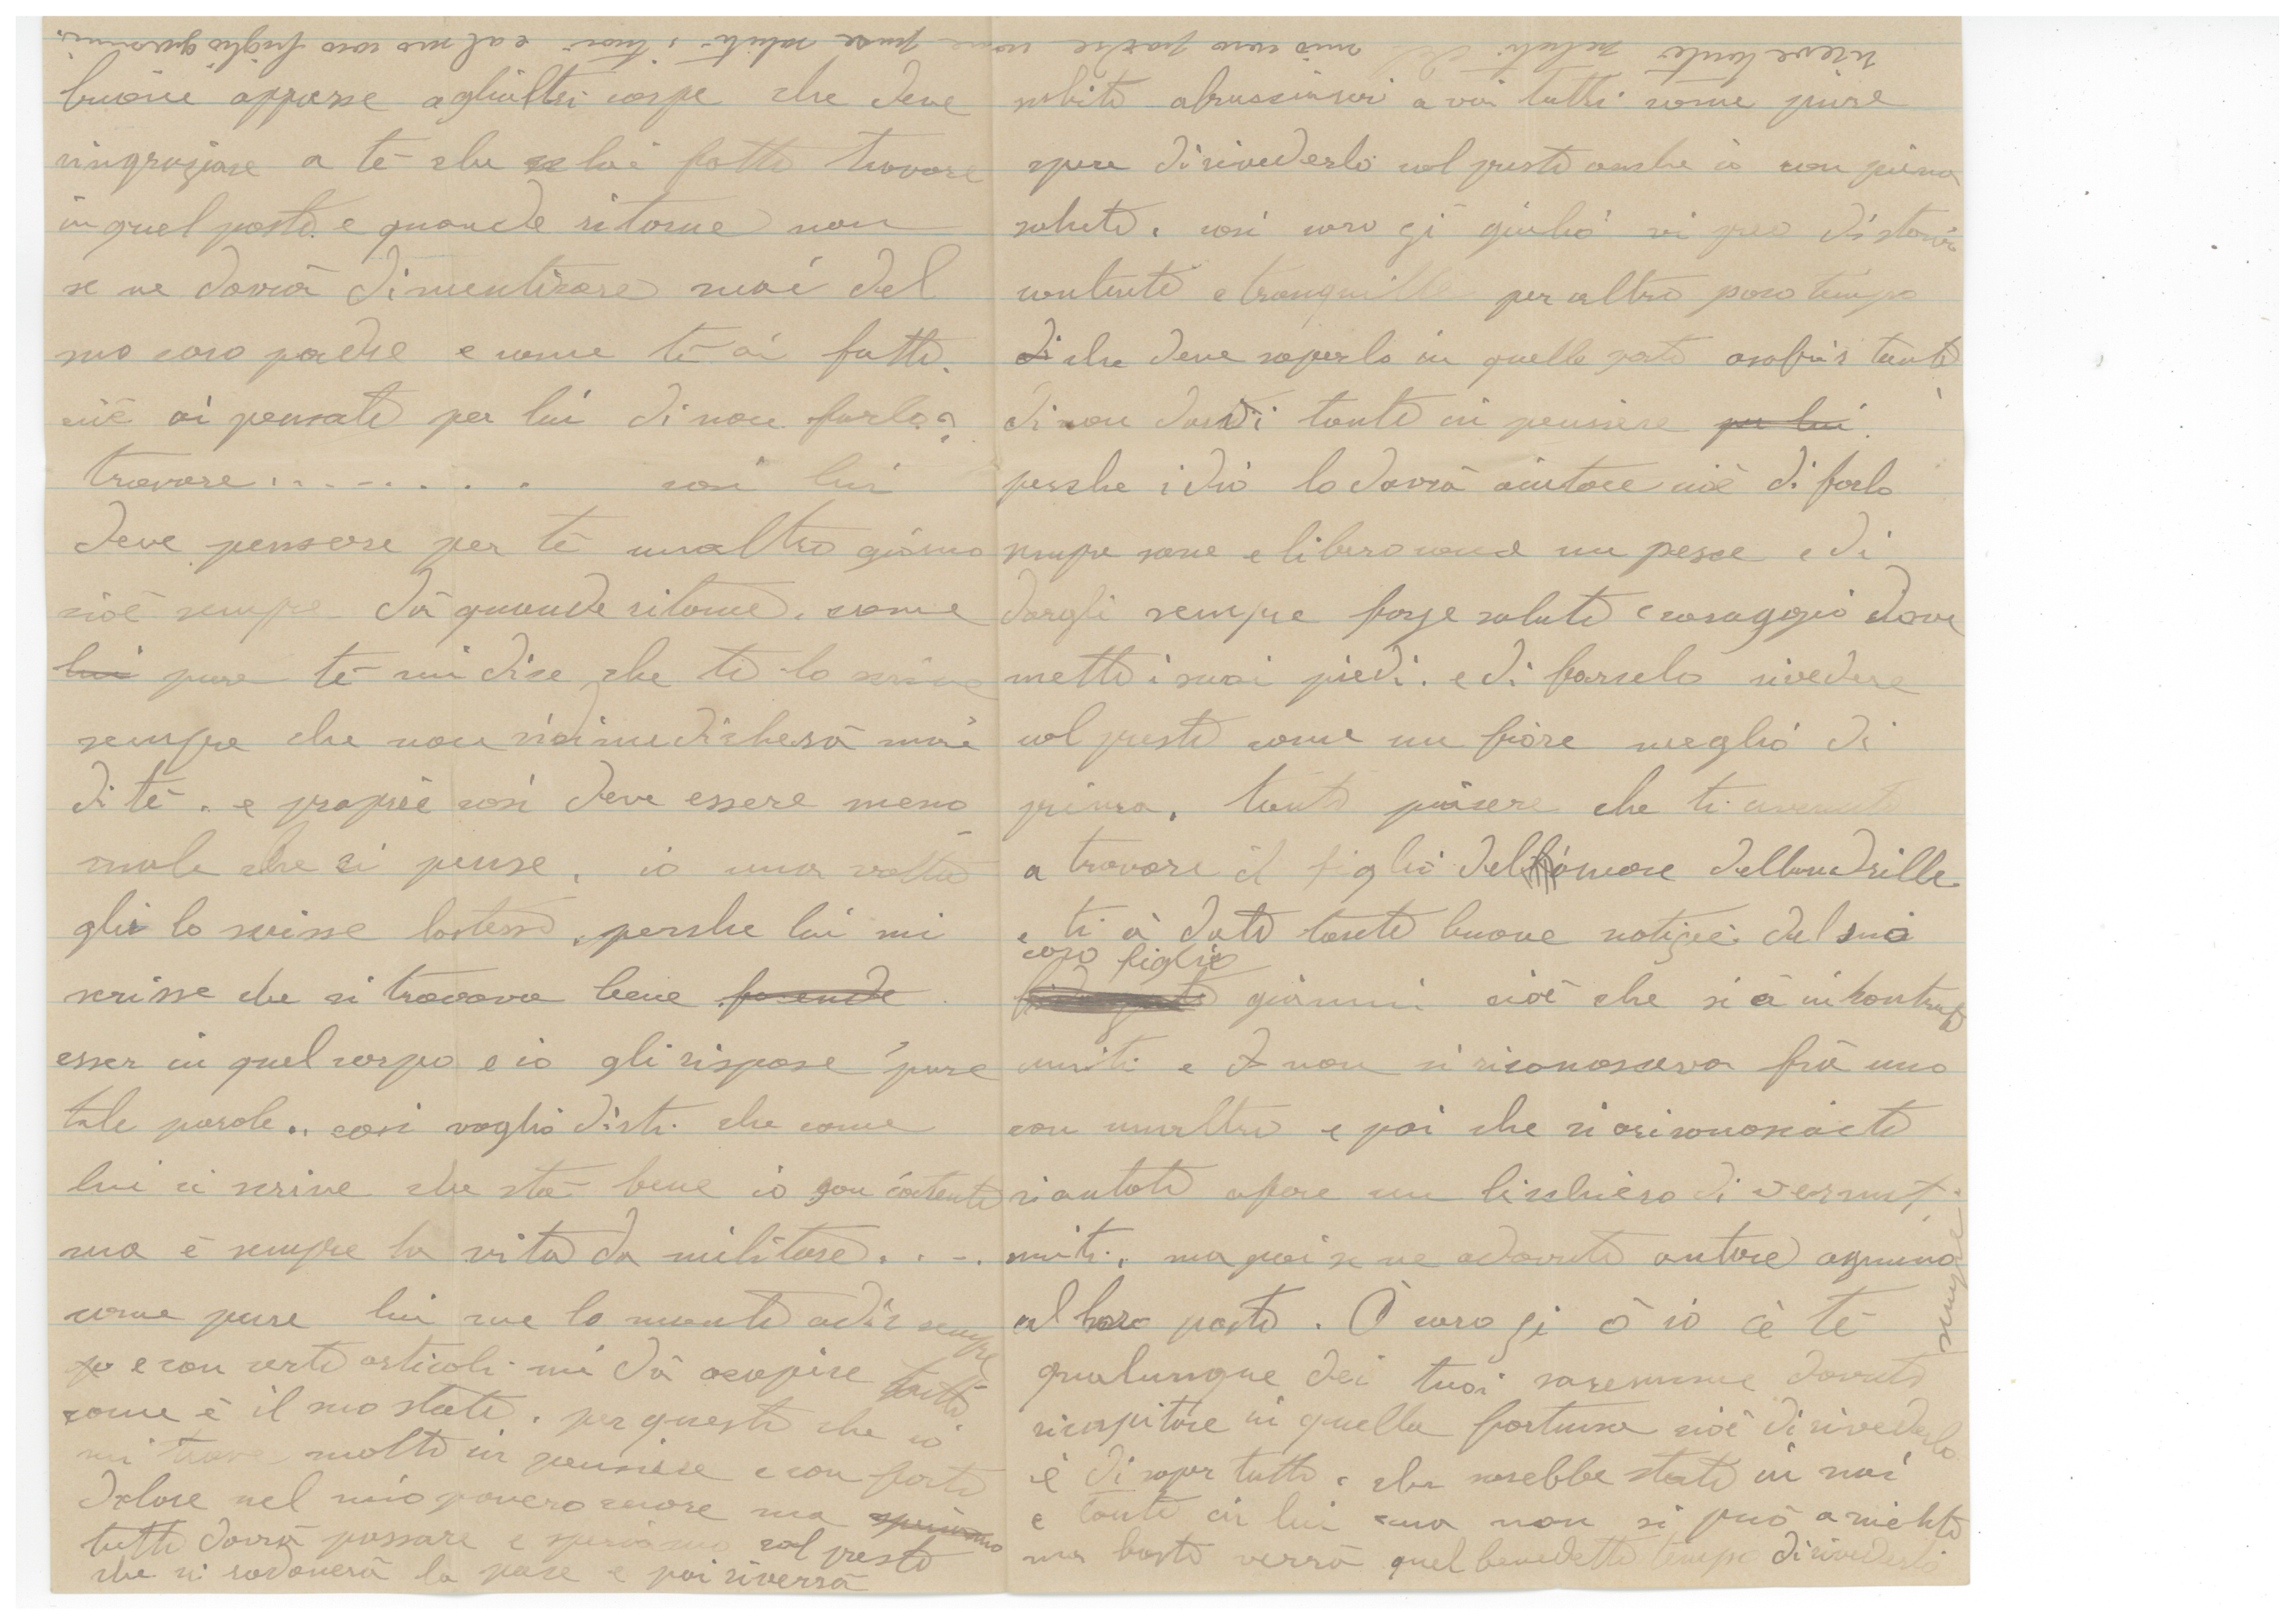 buone appresse agliultri corpe che deve
ringraziare a tè che lai fatto trovare
in quel posto e quande ritorne non
se ne dovrà dimenticare mai del
suo caro padre e come tè ai fatto.
cioè ai pensato per lui di non farlo?
trovare . . . . . . . cosi lui
deve pensare per tè unaltro giorno
cioè sempre dà quande ritorne. come
lui pure tè mi dice che te lo scrive
sempre che non sidimedicherà mai
di tè. e proprië cosi deve essere meno
male che ci pense, io una volta
gli lo scrisse lostesso, perche lui mi
scrisse che si trovava bene facende
esser in quel corpo e io gli rispose pure
tale parole. cosi voglio dirti che come
lui ci scrive che stà bene io son contente
ma è sempre la vita da militare. . . .
come pure lui me lo mante adir sempre
e con certo articoli mi dà acapire tutto
come è il suo stato. per questo che io
mi trove molto in pensiere e con forte
dolore nel mio povero cuore ma speriamo
tutto dovrà passare e speriamo col presto
che si radonerà la pace e poi riverrà
subito abruscinsi a voi tutti come pure
spere dirivederlo col presto anche io con piena
salute. cosi caro gi giulio vi preo distarvi
contente e tranquille per altro poco tempo
di che deve saperlo in quelle parte
di non darvi tante in pensiere per lui
perche idio lo dovrà aiutare cioè di farlo
sempre sane e libero come un pesce e di
dargli sempre forze salute e coraggio dove
mette i suoi piedi. e di farcelo rivedere
col presto come un fiore meglio di
prima. tanto piacere che ti avenuto
a trovare il figlio dell'amore
e ti à dato tante buone notizie del suo
caro figlio
gianni cioè che si à incontrato
uniti e non si riconosceva frà uno
con unaltro e poi che siariconosciuto
siantato apare un bicchiero di vermut
uniti. ma poi se ne adovuto antare ognuno
al loro posto. Ò caro gi ò io è tè
qualunque dei tuoi saremme dovuto
ricapitare in quella fortuna cioè dirivederlo
è di saper tutto. che sarebbe stato in noi
e tanto in lui ma non si può aniente
ma basta verrà quel benedetto tempo dirivederlo
sempre
riceve tanti saluti del mio caro padre come pure saluti i tuoi e al suo caro figlio giovanni.